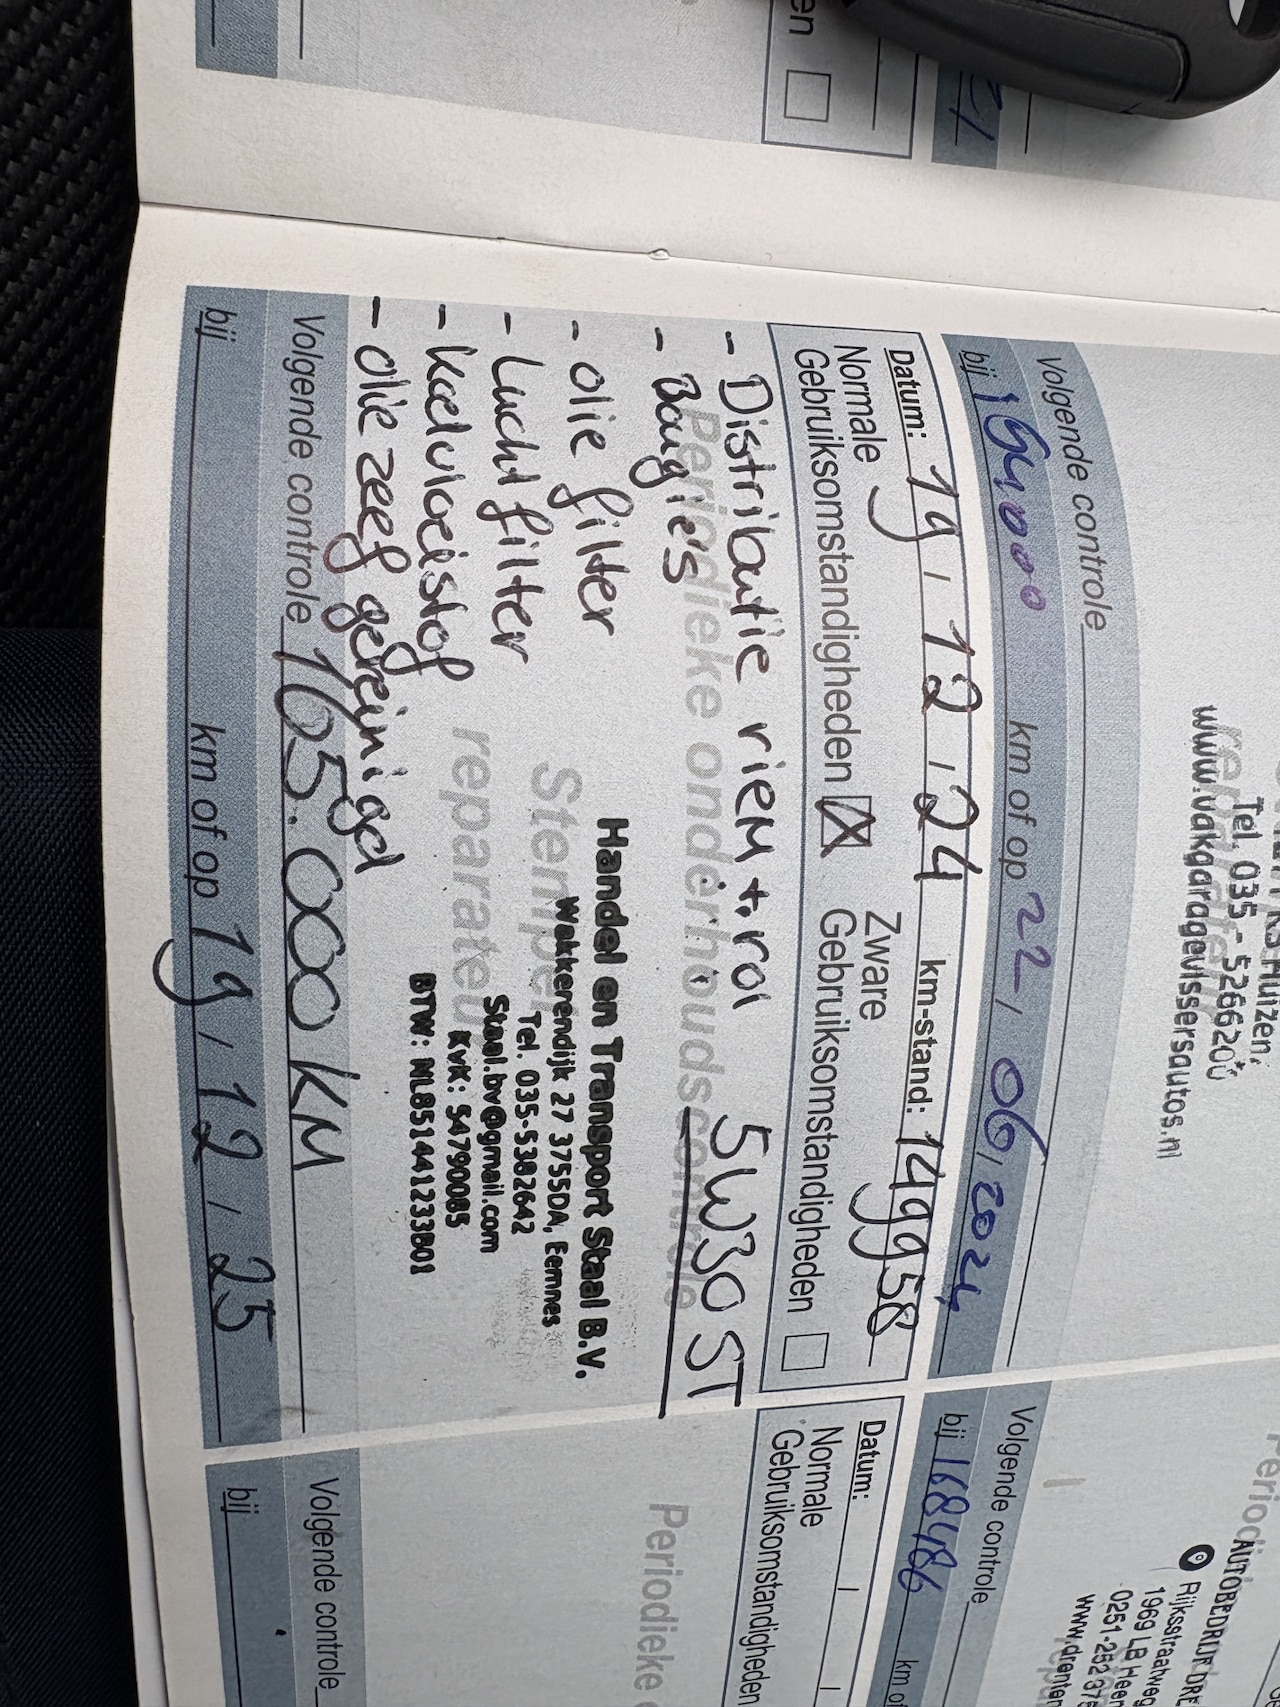 en
Tel. 035 - 5266200
www.vakgaragevissersautos.nl
Volgende controle
bij km of op 22, 06, 2024
Datum: 19, 12, 24 km-stand: 149958
Normale
Gebruiksomstandigheden
Zware
Gebruiksomstandigheden
- Distributie riem + rol 5W30 ST
- Bougie's
- olie filter
- Lucht filter
- koelvloeistof
- olie zeef gereinigd
Periodieke onderhoudscontrole
Stempel
reparateur
Handel en Transport Staal B.V.
Wakkerendijk 27 3755DA, Eemnes
Tel. 035-5382642
Staal.bv@gmail.com
KvK: 54790085
BTW: NL851441233B01
Volgende controle 165.000 KM
bij km of op 19, 12, 25
AUTOBEDRIJF DRE
Rijksstraatweg
1969 LB Heem
0251-252 37
www.drenten
Volgende controle
bij 168486 km of
Datum:
Normale
Gebruiksomstandigheden
Periodieke
Volgende controle
bij